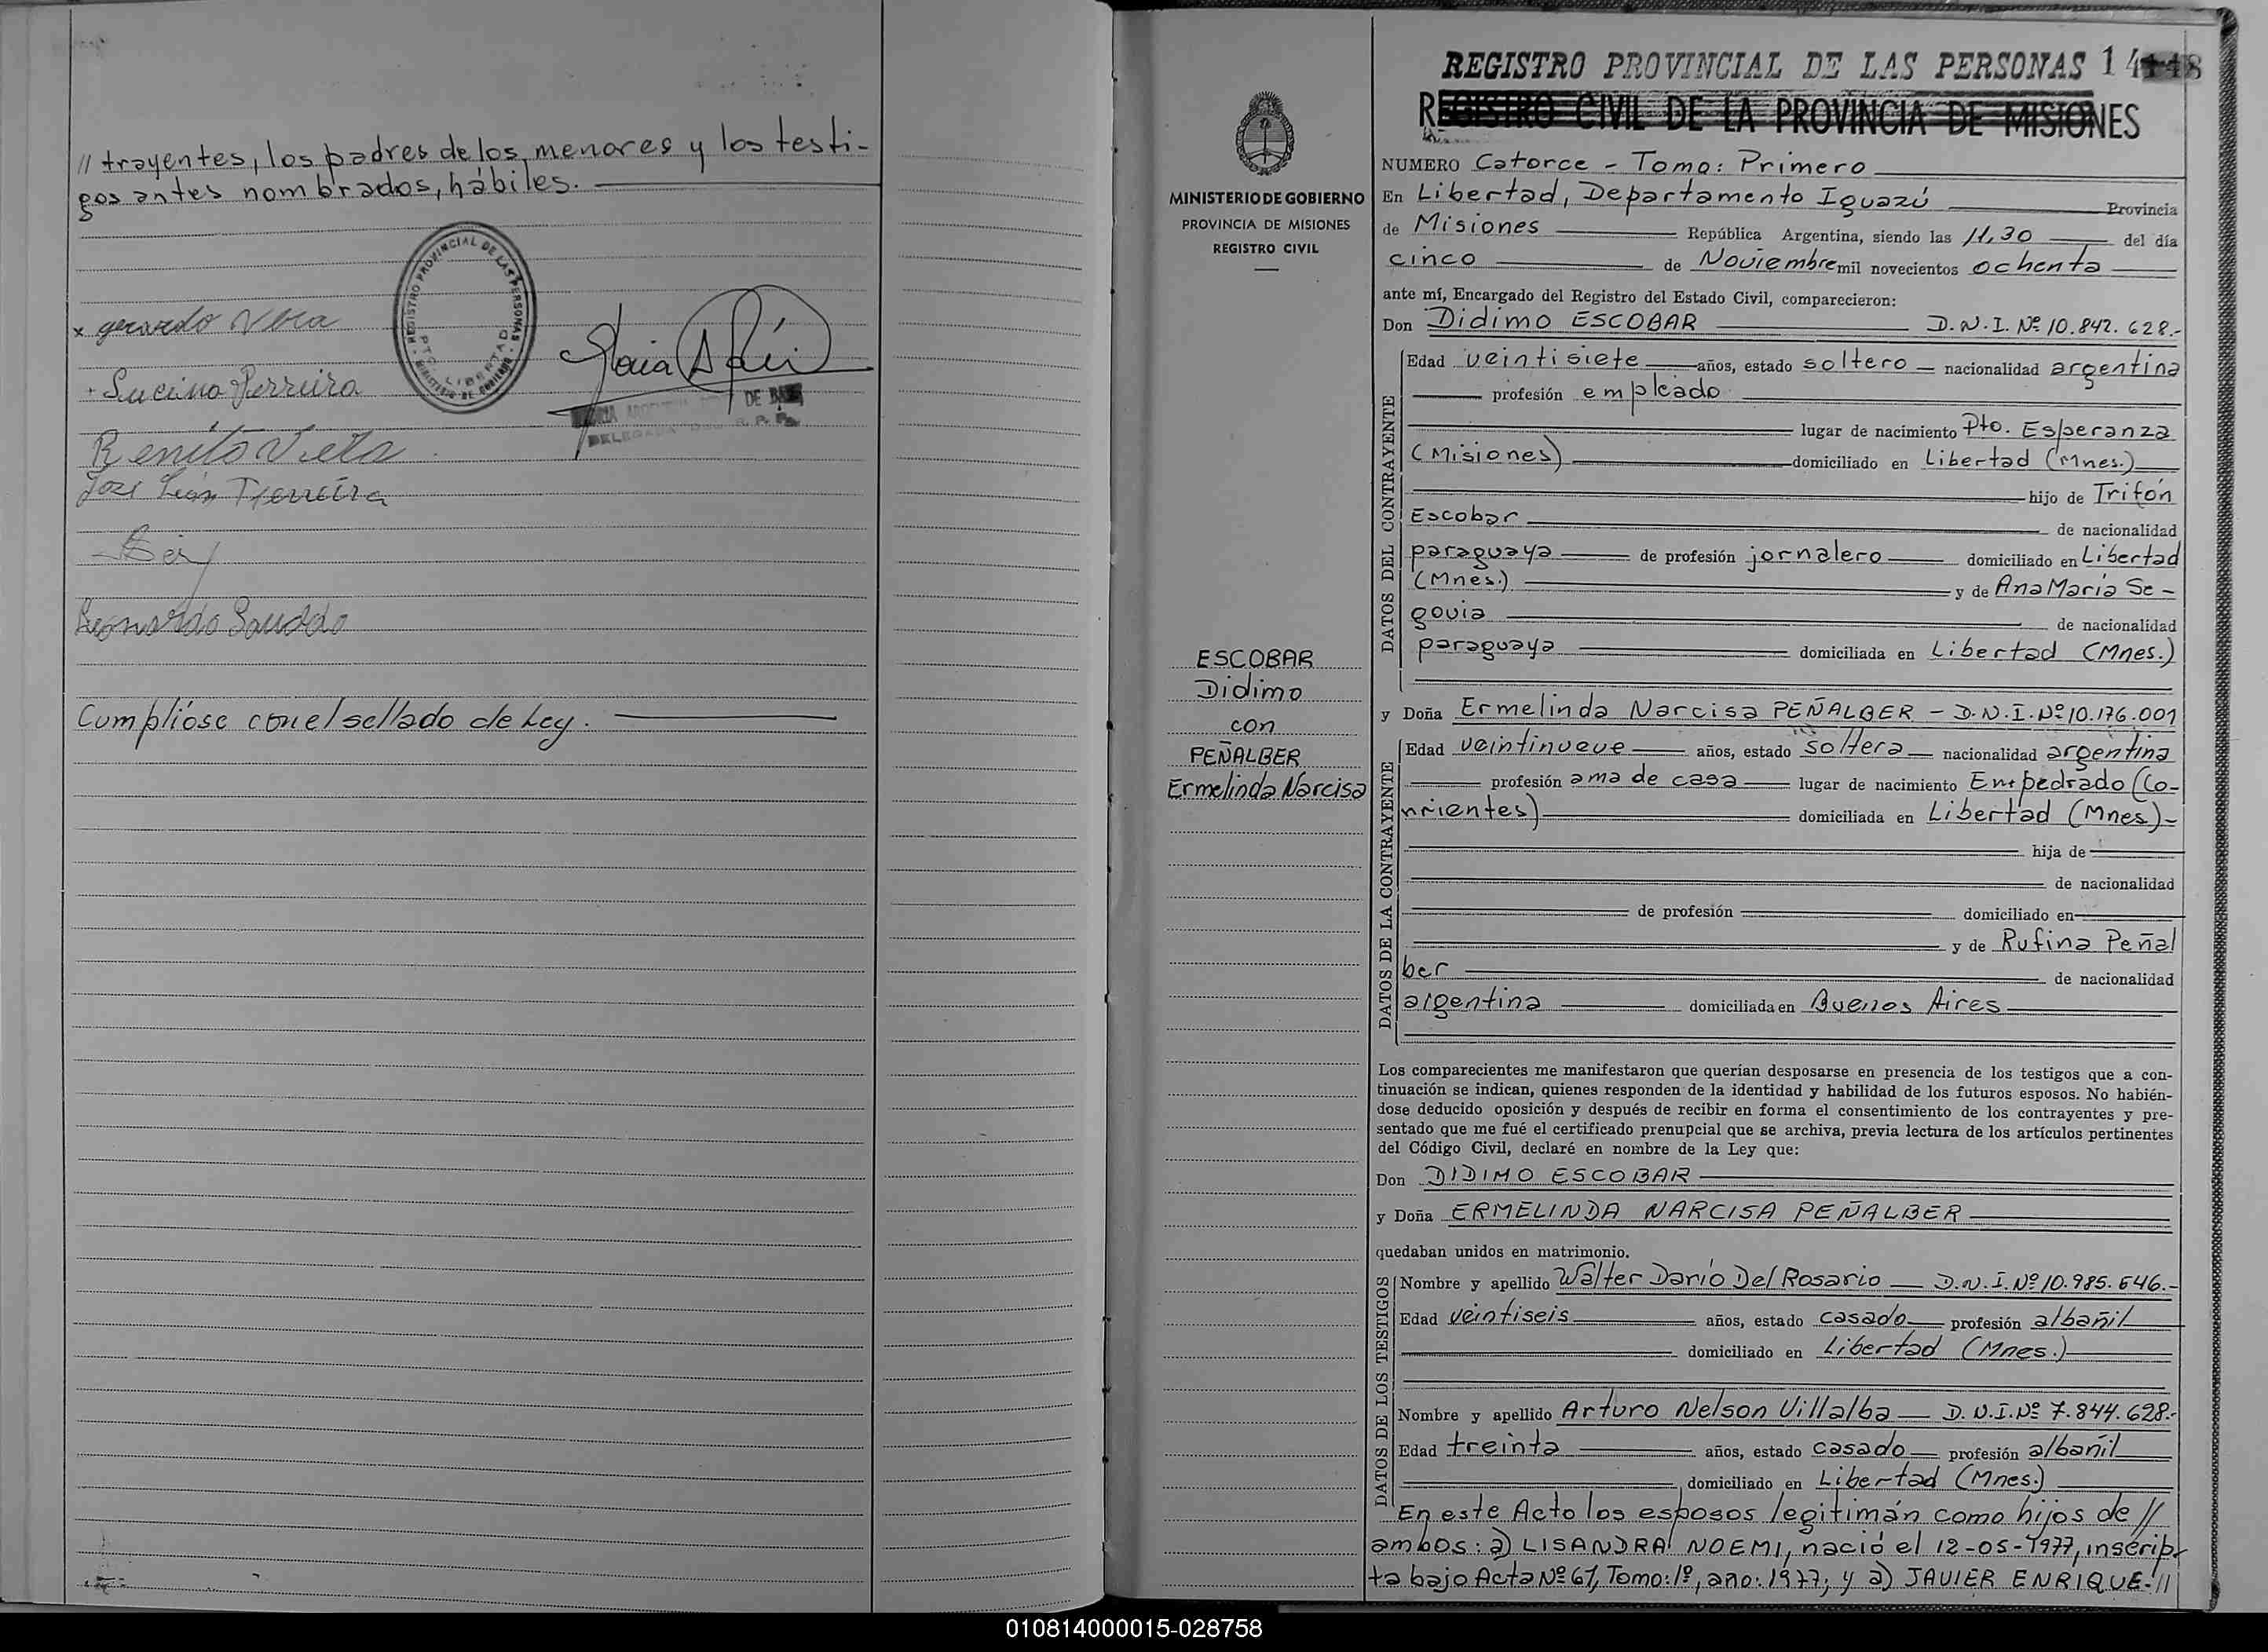 // trayentes, los padres de los menores y los testi-
gos antes nombrados, hábiles.
REGISTRO PROVINCIAL DE LAS PERSONAS
PTO. LIBERTAD
MINISTERIO DE GOBIERNO
x gerardo Vera
Lucina Ferreira
DE
DELEGADA R. P. P.
Benito Vera
José León Fferreira
Leonardo
Cumplióse con el sellado de Ley.
MINISTERIO DE GOBIERNO
PROVINCIA DE MISIONES
REGISTRO CIVIL
ESCOBAR
Didimo
con
PEÑALBER
Ermelinda Narcisa
REGISTRO PROVINCIAL DE LAS PERSONAS 14
REGISTRO CIVIL DE LA PROVINCIA DE MISIONES
NUMERO Catorce - Tomo: Primero
En Libertad, Departamento Iguazú Provincia
de Misiones República Argentina, siendo las 11,30 del día
cinco de Noviembre mil novecientos ochenta
ante mí, Encargado del Registro del Estado Civil, comparecieron:
Don Didimo ESCOBAR D.N.I. Nº 10.842.628.-
DATOS DEL CONTRAYENTE
Edad veintisiete años, estado soltero nacionalidad argentina
profesión empleado
lugar de nacimiento Pto. Esperanza
(Misiones) domiciliado en Libertad (Mnes.)
hijo de Trifón
Escobar de nacionalidad
paraguaya de profesión jornalero domiciliado en Libertad
(Mnes.) y de Ana María Se-
govia de nacionalidad
paraguaya domiciliada en Libertad (Mnes.)
y Doña Ermelinda Narcisa PEÑALBER - D.N.I. Nº 10.176.001
DATOS DE LA CONTRAYENTE
Edad veintinueve años, estado soltera nacionalidad argentina
profesión ama de casa lugar de nacimiento Empedrado (Co-
rrientes) domiciliada en Libertad (Mnes)-
hija de
de nacionalidad
de profesión domiciliado en
y de Rufina Peñal
ber de nacionalidad
argentina domiciliada en Buenos Aires
Los comparecientes me manifestaron que querían desposarse en presencia de los testigos que a con-
tinuación se indican, quienes responden de la identidad y habilidad de los futuros esposos. No habién-
dose deducido oposición y después de recibir en forma el consentimiento de los contrayentes y pre-
sentado que me fué el certificado prenupcial que se archiva, previa lectura de los artículos pertinentes
del Código Civil, declaré en nombre de la Ley que:
Don DIDIMO ESCOBAR
y Doña ERMELINDA NARCISA PEÑALBER
quedaban unidos en matrimonio.
DATOS DE LOS TESTIGOS
Nombre y apellido Walter Darío Del Rosario D.N.I. Nº 10.985.646.-
Edad veintiseis años, estado casado profesión albañil
domiciliado en Libertad (Mnes.)
Nombre y apellido Arturo Nelson Villalba D.N.I. Nº 7.844.628.-
Edad treinta años, estado casado profesión albañil
domiciliado en Libertad (Mnes.)
En este Acto los esposos legitimán como hijos de //
ambos: a) LISANDRA NOEMI, nació el 12-05-1977, inscrip-
ta bajo Acta Nº 61, Tomo: 1º, año: 1977; y a) JAVIER ENRIQUE.//
010814000015-028758